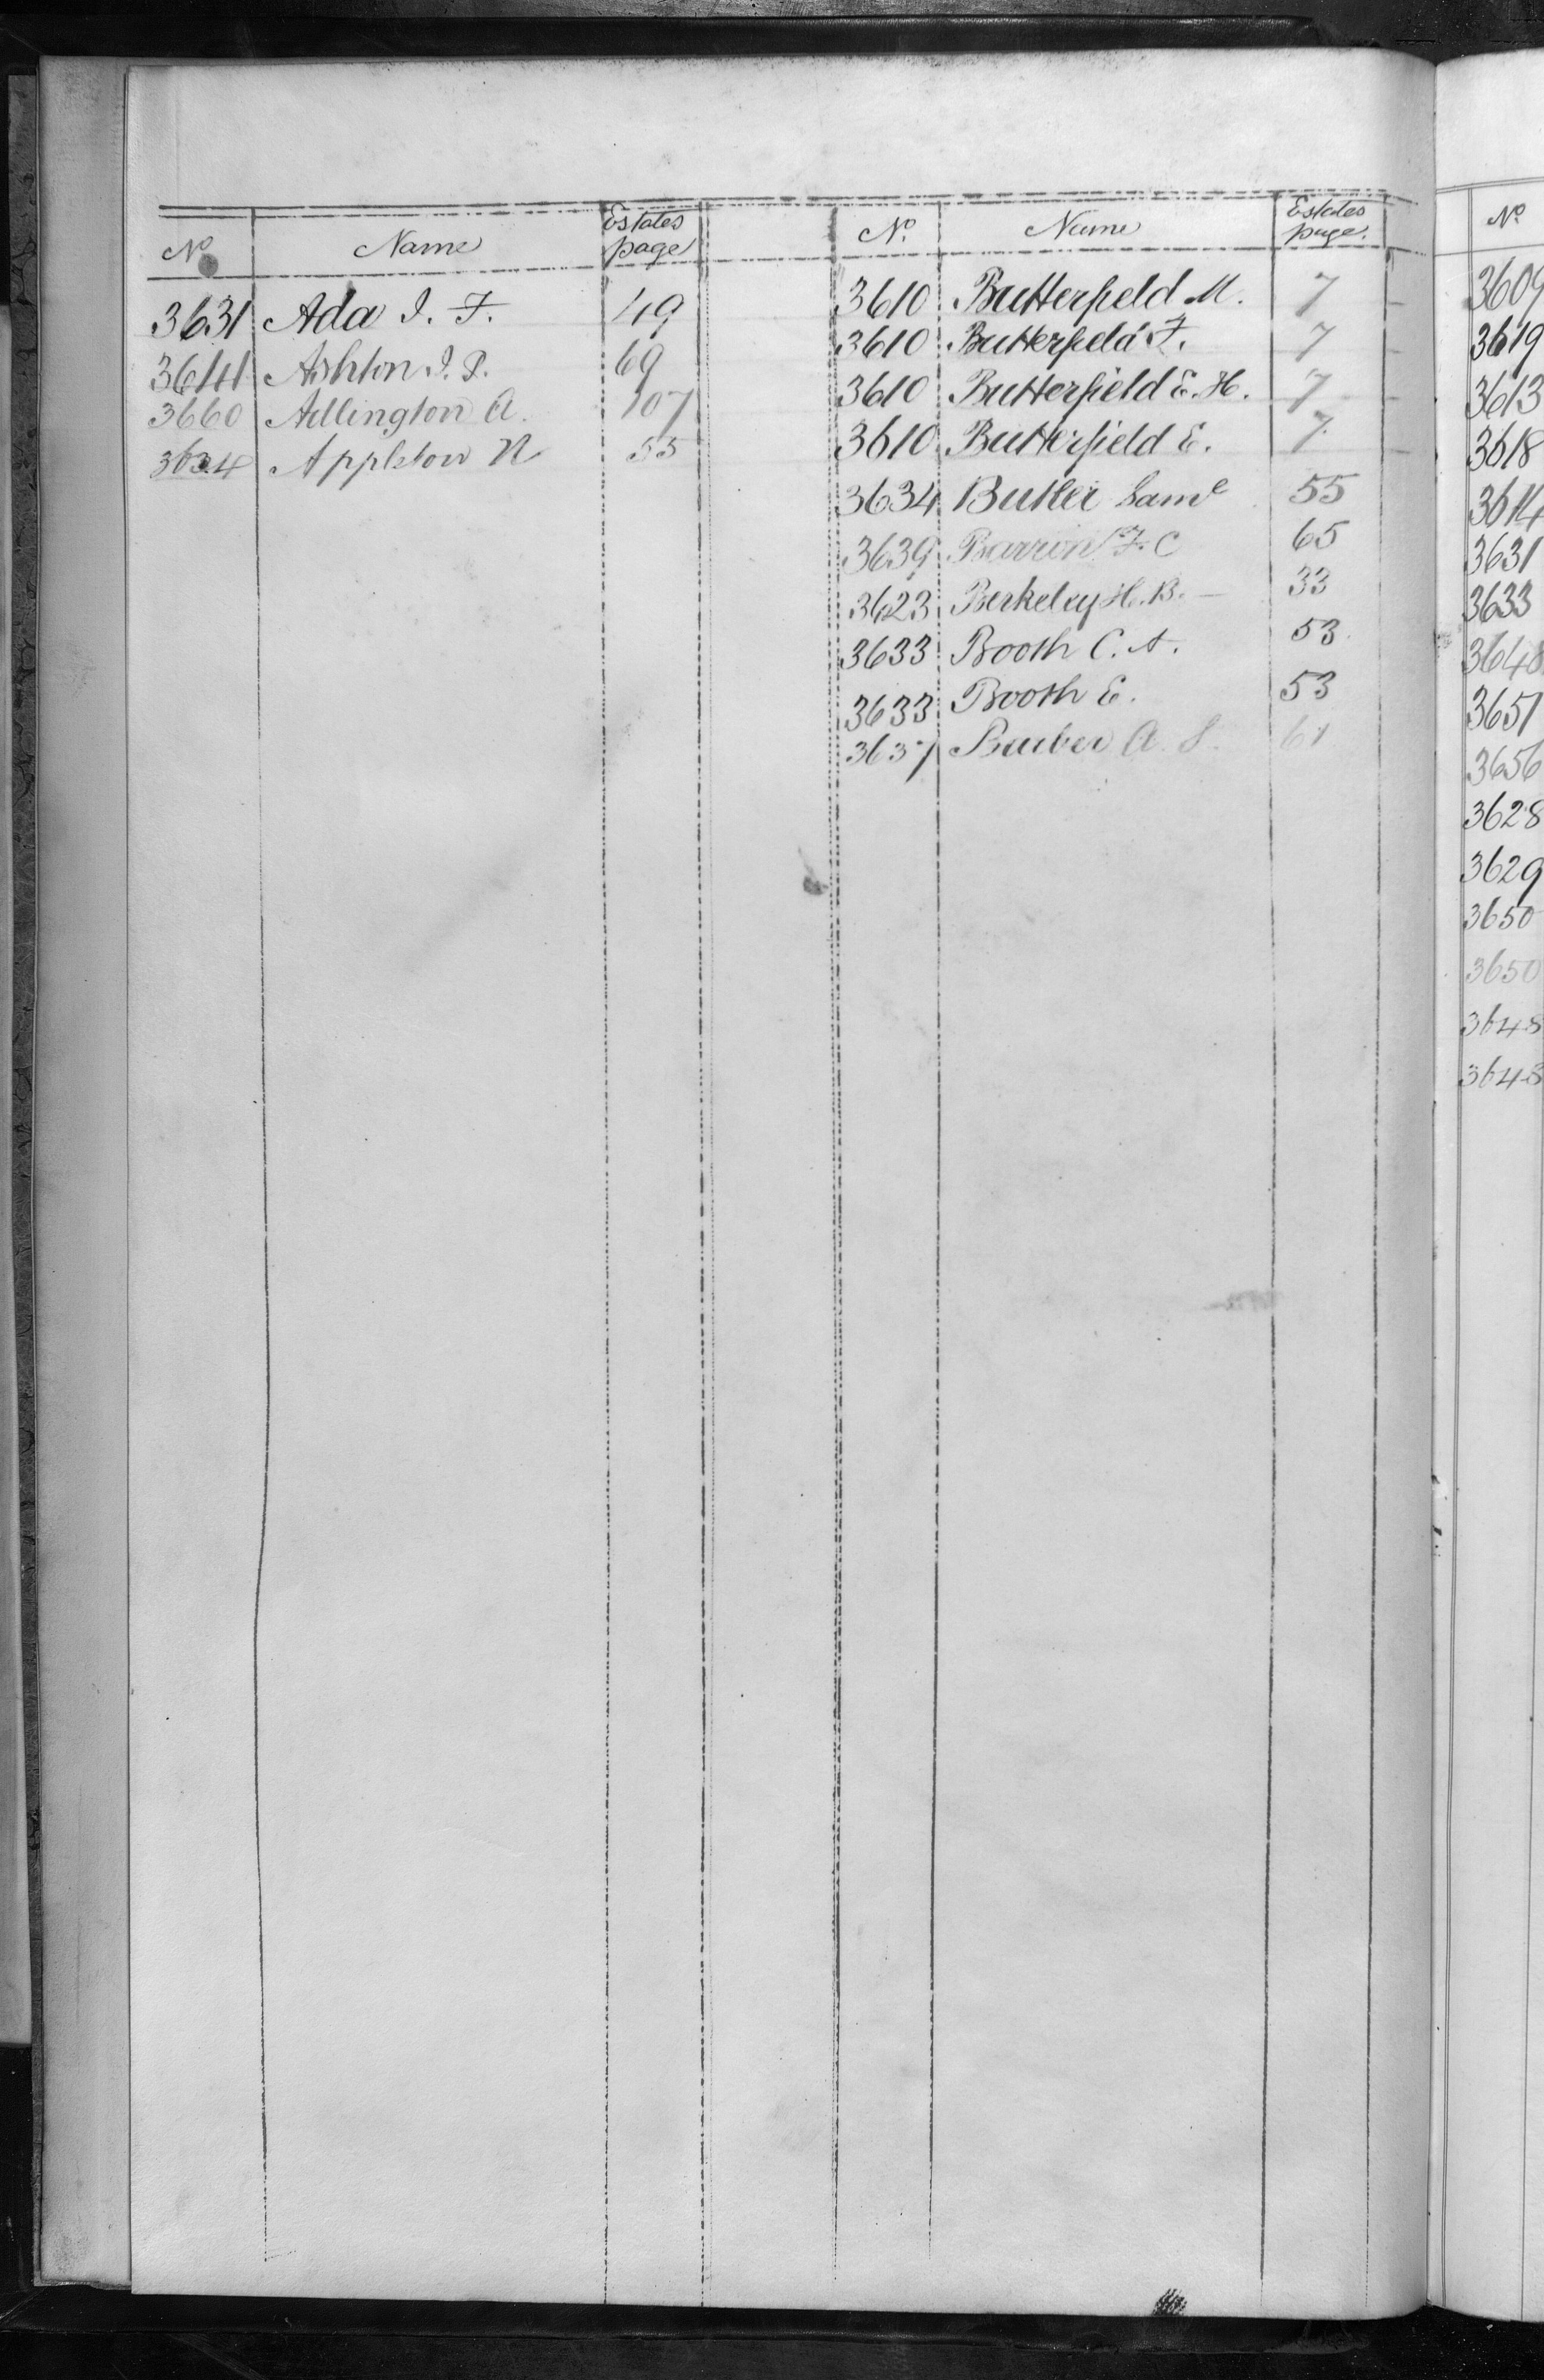 No Name Estates page
3631 Ada I. F. 49
3641 Ashton I. P. 69
3660 Adlington A. 107
3634 Appleton N 55
No. Name Estates page.
3610 Butterfield M. 7
3610 Butterfield F. 7
3610 Butterfield E. H. 7
3610 Butterfield E. 7
3634 Butler Saml 55
3639 Barron F. C 65
3623 Berkeley H. B. — 33
3633 Booth C. A. 53
3633 Booth E. 53
3637 Barber A. S. 61
No
3609
3619
3613
3618
3614
3631
3633
3648
3651
3656
3628
3629
3650
3650
3648
3648